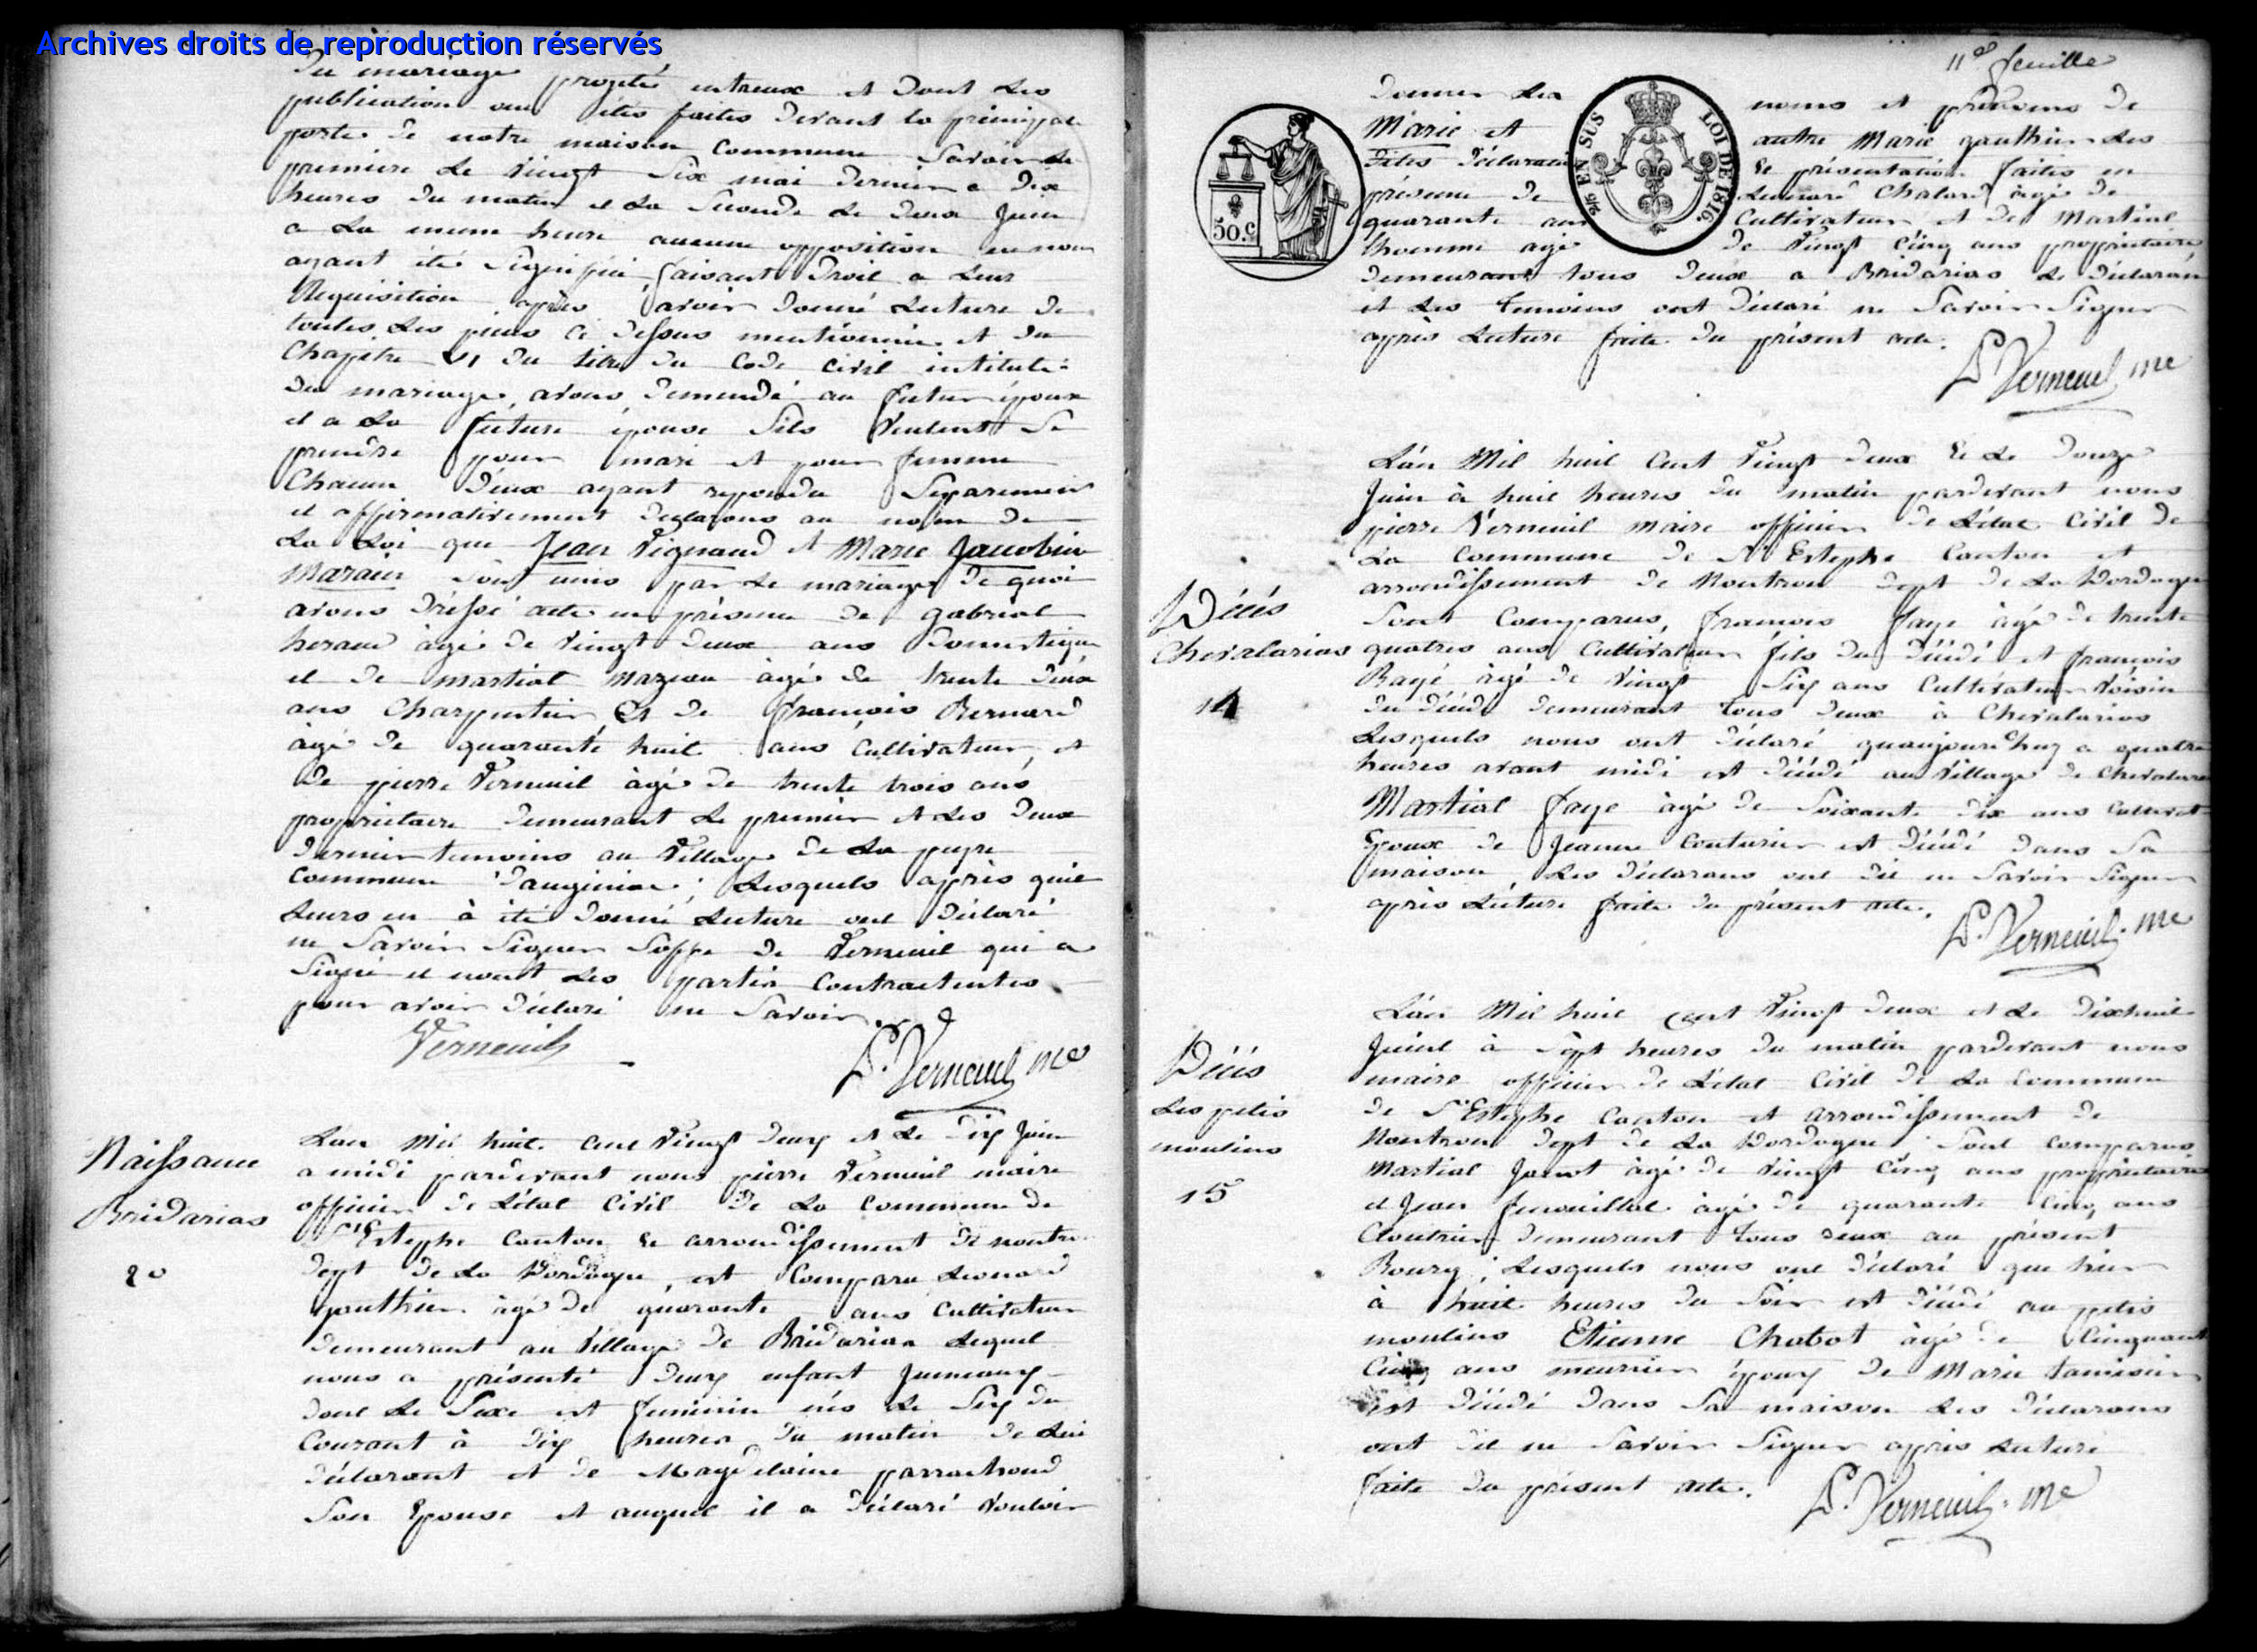 Archives droits de reproduction réservés
Du mariage projeté entreux et dont les
publication ont étés faites devant la principale
porte de notre maison commune Savoir la
premiere le vingt Six mai dernier a dix
heures du matin et la Seconde le deux Juin
a la meme heure aucune opposition ne nous
ayant été Signifiée, faisant droit a leur
Requisition après avoir donné Lecture de
toutes les pieces ci dessus mentionnées et du
Chapitre VI du titre du Code civil intitulé
du mariage, avons demendé au futur époux
et a la future épouse Sils veulent Se
prendre pour mari et pour femme
Chacun deux ayant repondu Séparement
et affirmativement declarons au nom de
La Loi que Jean Vignaud et Marie
sont unis par le mariage de quoi
avons dressé acte en présence de gabriel
heraud âgé de vingt deux ans Domestique
et de martial mazeau âgé de trente deux
ans Charpentier Et de françois Bernard
âgé de quarante huit ans Cultivateur et
de pierre Verneuil âgé de trente trois ans
propriétaire demeurant le premier et les deux
dernier temoins au Village de la
commune d'augignac; Lesquels après quil
leurs en à été donné Lecture ont déclaré
ne Savoir Signer Soffe de Verneuil qui a
Signé et nont les partis Contractentes
pour avoir déclaré ne Savoir.
Verneuil
P. Verneuil me
Naissance
Bridarias
20
Lan Mil huit Cent Vingt deux et le dix Juin
a midi pardevant nous pierre Verneuil maire
officier de Létat Civil de la Commune de
St Estephe Canton et arrondissement de nontron
dept de la Dordogne, est Comparu Leonard
gauthier âgé de quarante ans Cultivateur
demeurant au Village de Bridarias Lequel
nous a présenté deux enfant Jumeaux
dont le Sexe est feminin nés le Six du
Courant à dix heures du matin de Lui
déclarant et de Magdelaine parrachoud
Son Epouse et auquel il a déclaré Vouloir
11e feuille
donner les noms et prénoms de
Marie et autre Marie gauthier les
dites déclaration et présentation faites en
présence de Leonard Chalard âgé de
quarante ans Cultivateur et de Martial
homme age de Vingt Cinq ans propriétaire
demeurant tous deux a Bridarias le déclarant
et les temoins ont déclaré ne Savoir Signer
après Lecture faite du présent acte.
50.c
2/5 EN SUS
LOI DE 1816
P. Verneuil me
Décès
Chevalarias
14
L'an Mil huit Cent Vingt deux et le Douze
Juin à huit heures du matin pardevant nous
pierre Verneuil maire officier de Létat Civil de
La Commune de St Estephe Canton et
arrondissement de Nontron dept de la Dordogne
Sont Comparus, françois faye âgé de trente
quatres ans Cultivateur fils du décédé et françois
Bayé âgé de Vingt Six ans Cultivateur Voisin
du décédé demeurant tous deux à Chevalarias
Lesquels nous ont déclaré quaujourdhuy a quatre
heures avant midi est décédé au Village de Chevalarias
Martial faye âgé de Soixante dix ans Cultivat
Epoux de Jeanne Couturier est décédé dans Sa
maison, Les déclarans ont dit ne Savoir Signer
après Lecture faite du présent acte.
P. Verneuil me
Décès
Les petis
moulins
15
L'an Mil huit Cent Vingt deux et le dixhuit
Juin à Sept heures du matin pardevant nous
maire officier de Létat Civil de la Commune
de St Estephe Canton et arrondissement de
Nontron dept de la Dordogne Sont comparus
Martial âgé de Vingt Cinq ans propriétaire
et Jean âgé de quarante Cinq ans
Cloutrier demeurant tous deux au présent
Bourg; Lesquels nous ont déclaré que hier
à huit heures du Soir est décédé au petis
moulins Etienne Chabot âgé de Cinquante
Cinq ans meunier époux de Marie
est décédé dans Sa maison Les déclarans
ont dit ne Savoir Signer après Lecture
faite du présent acte.
P. Verneuil. me